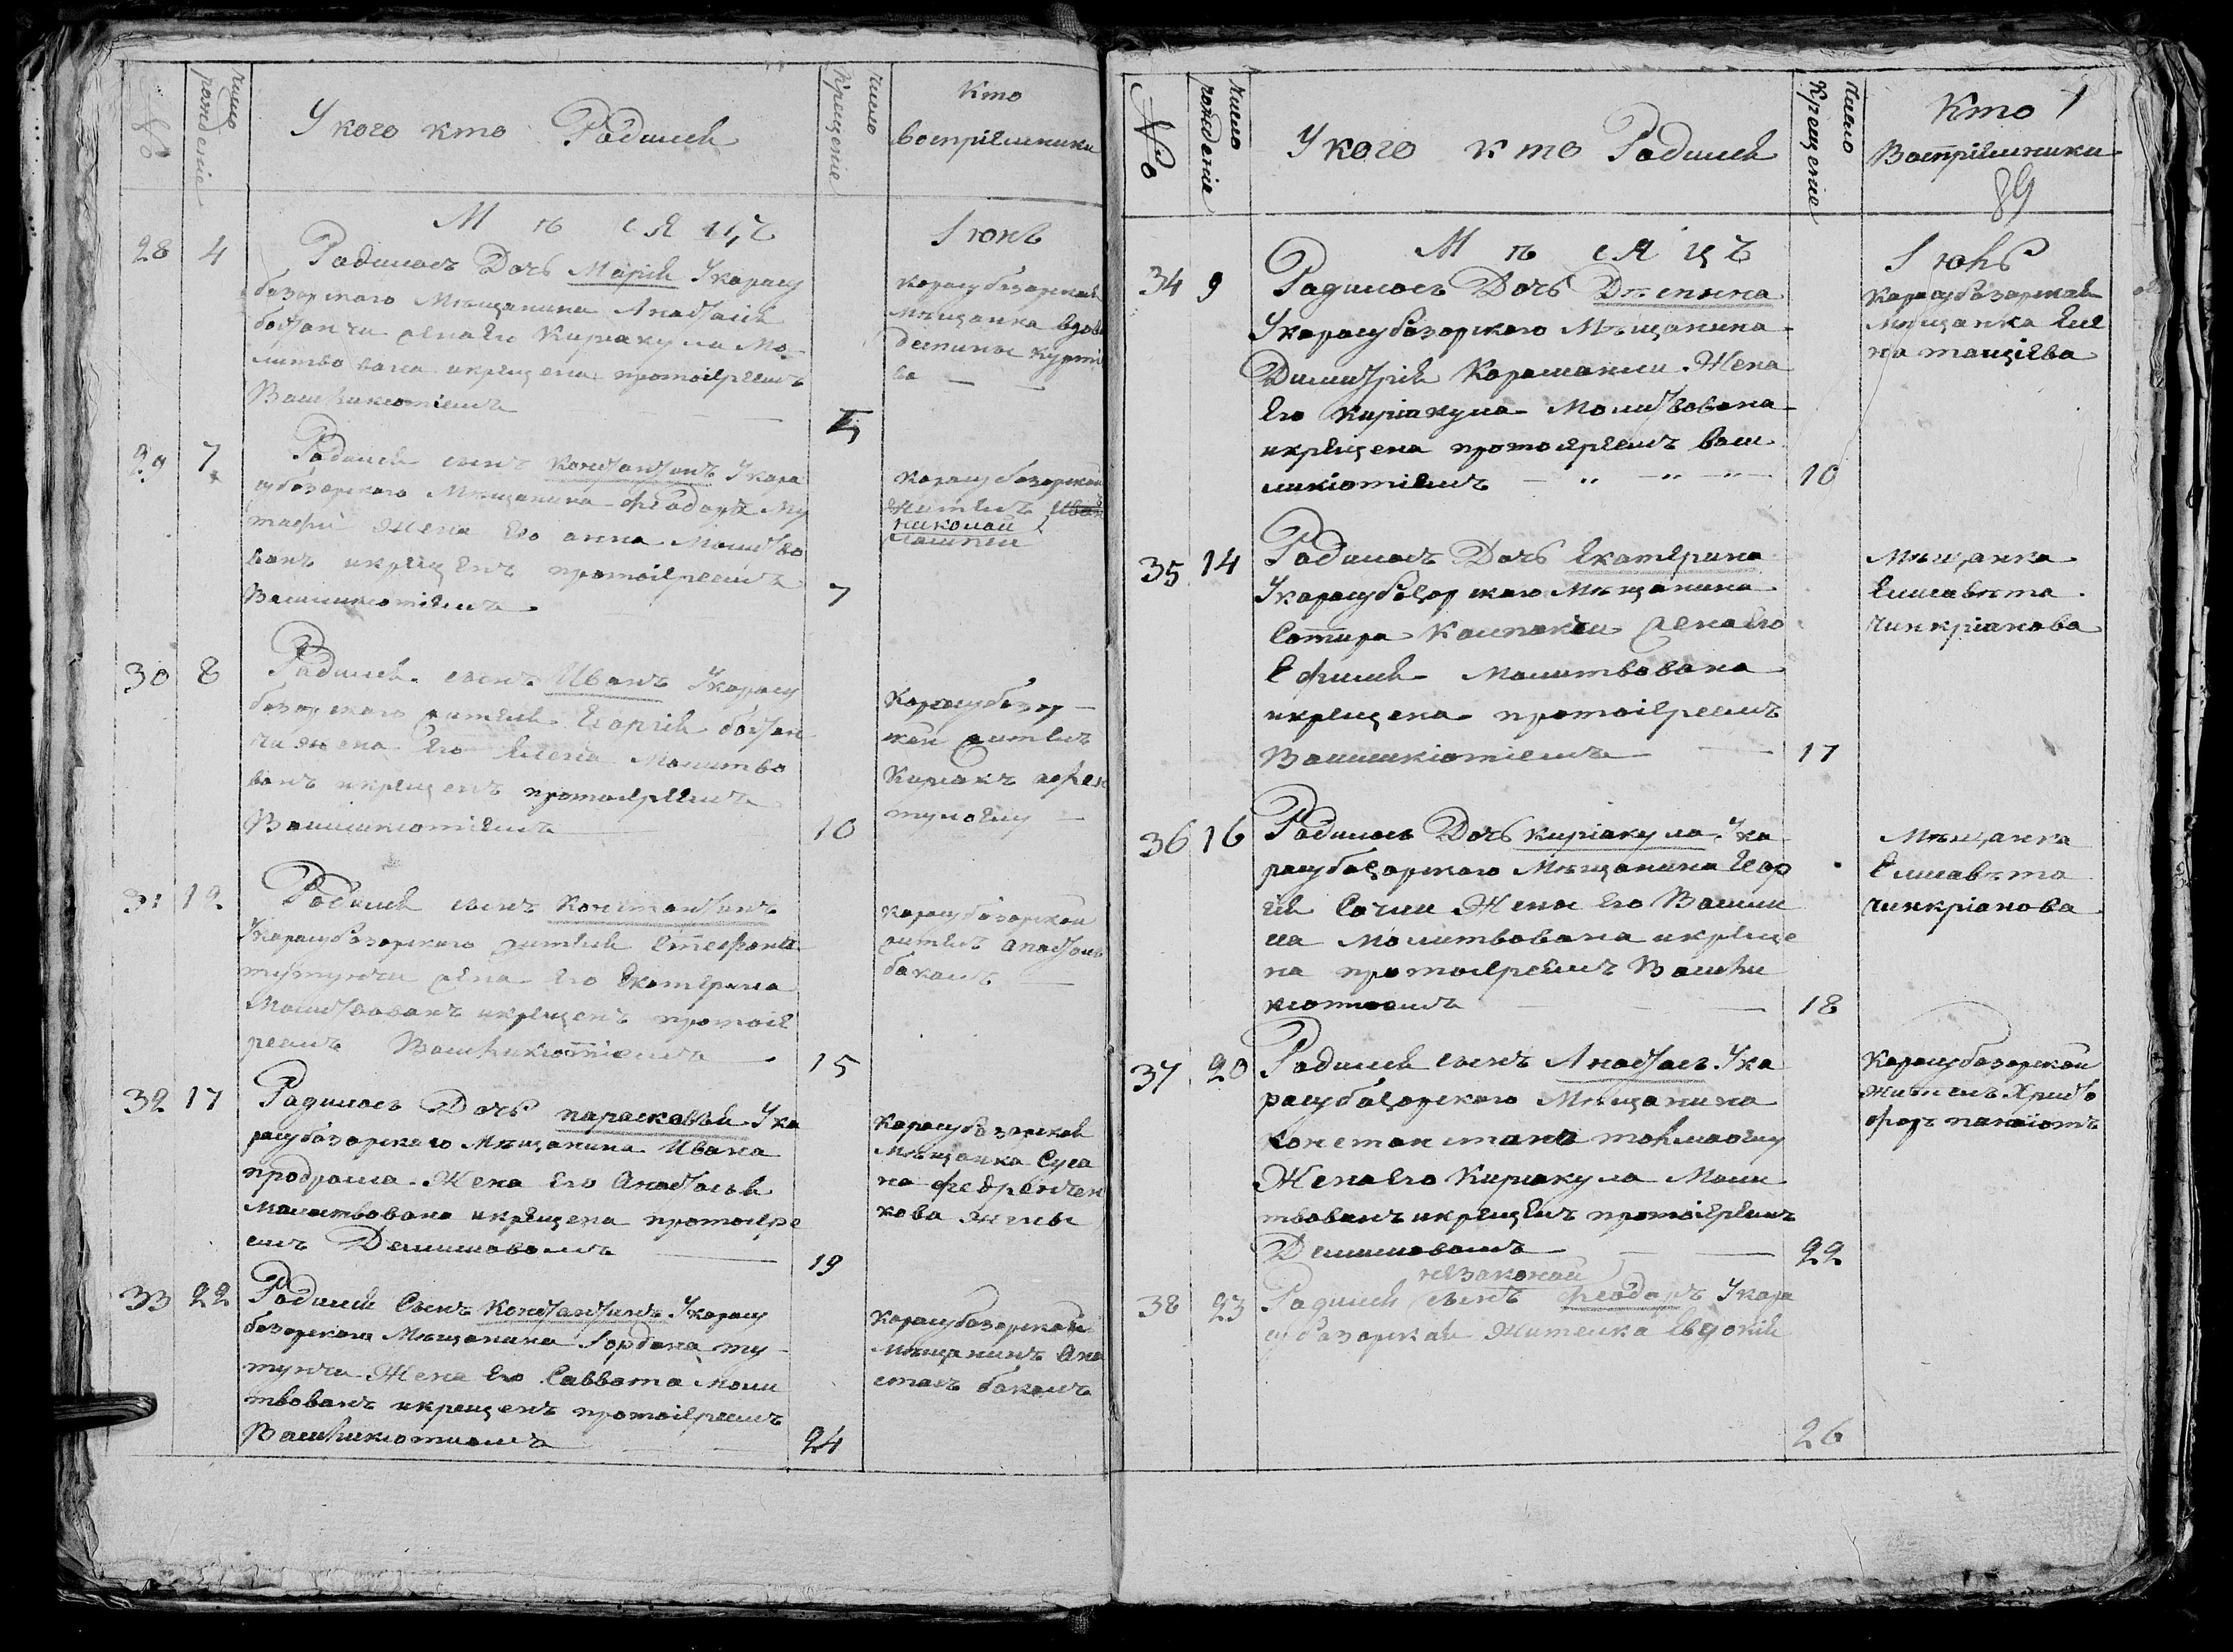 №
число рождение
У кого кто Родился
число Крещение
Кто
воспріемники
Мѣсяцъ
Іюнь
28 4
Родилась Дочь Марія Укарасу
базарского Мѣщанина Анастасія
бостанчи жена Его Кириакула Мо
литвована икрещена протоіереемъ
5
карасубазарская
мѣщанка вдова
29 7
Родился сынъ Константинъ Укара
субазарского Мѣщанина Феодора Му
тафи Жена Его анна Молитво
ванъ икрещенъ протоіереемъ
7
карасубазарской
житель
николай
30 8
Родился сынъ Иванъ Укарасу
базарского жителя Георгія бостан
чи жена Его Елена Молитво
ванъ икрещенъ протоіереемъ
10
Карасубазар
ской житель
Кириакъ
31 12
Родился сынъ Константинъ
Укарасубазарского жителя Стефана
тутунчи жена Его Екатерина
Молитвованъ икрещенъ протоіе
реемъ
15
карасубазарской
житель анастасъ
бакалъ
32 17
Родилась Дочь параскевія Ука
расубазарского Мѣщанина Ивана
продрома Жена Его Анастасія
Молитвована икрещена протоіере
емъ Демишовомъ
19
Карасубазарской
Мѣщанка Суса
на
кова жены
33 22
Родился Сынъ Константинъ Укарасу
базарского Мѣщанина Іордана ту
тунчи Жена Его Саввата моли
твованъ икрещенъ протоіереемъ
24
Карасубазарской
мѣщанинъ Ана
стасъ бакалъ
№
число рождение
У кого кто Родился
число Крещение
Кто
Воспріемники
89
Мѣсяцъ
Іюнь
34 9
Родилась Дочь Дѣспина
Укарасубазарского Мѣщанина
Димитрія Караманли Жена
Его Киріакула Молитвована
икрещена протоіереемъ васи
ликіотіемъ
10
Карасубазарская
Мѣщанка Еле
на
35 14
Родилась Дочь Екатерина
Укарасубазарского Мѣщанина
Сотира Калпакчи жена Его
Ефимия молитвована
икрещена протоіереемъ
Василикіотіемъ
17
Мѣщанка
Елисавѣта
чинкріанова
36 16
Родилась Дочь киріакула Ука
расубазарского Мѣщанина Геор
гія Сачли Жена Его Васили
са Молитвована икреще
на протоіереемъ Васили
кіотіемъ
18
Мѣщанка
Елисавѣта
чинкріанова
37 20
Родился сынъ Анастасъ Ука
расубазарского Мѣщанина
Константина
Жена Его Кириакула Моли
твованъ икрещенъ протоіереемъ
Демишовомъ
22
Карасубазарской
житель Христо
форъ панаіотъ
38 23
незаконой
Родился сынъ Феодоръ Укара
субазарская Жителка Евдокія
26